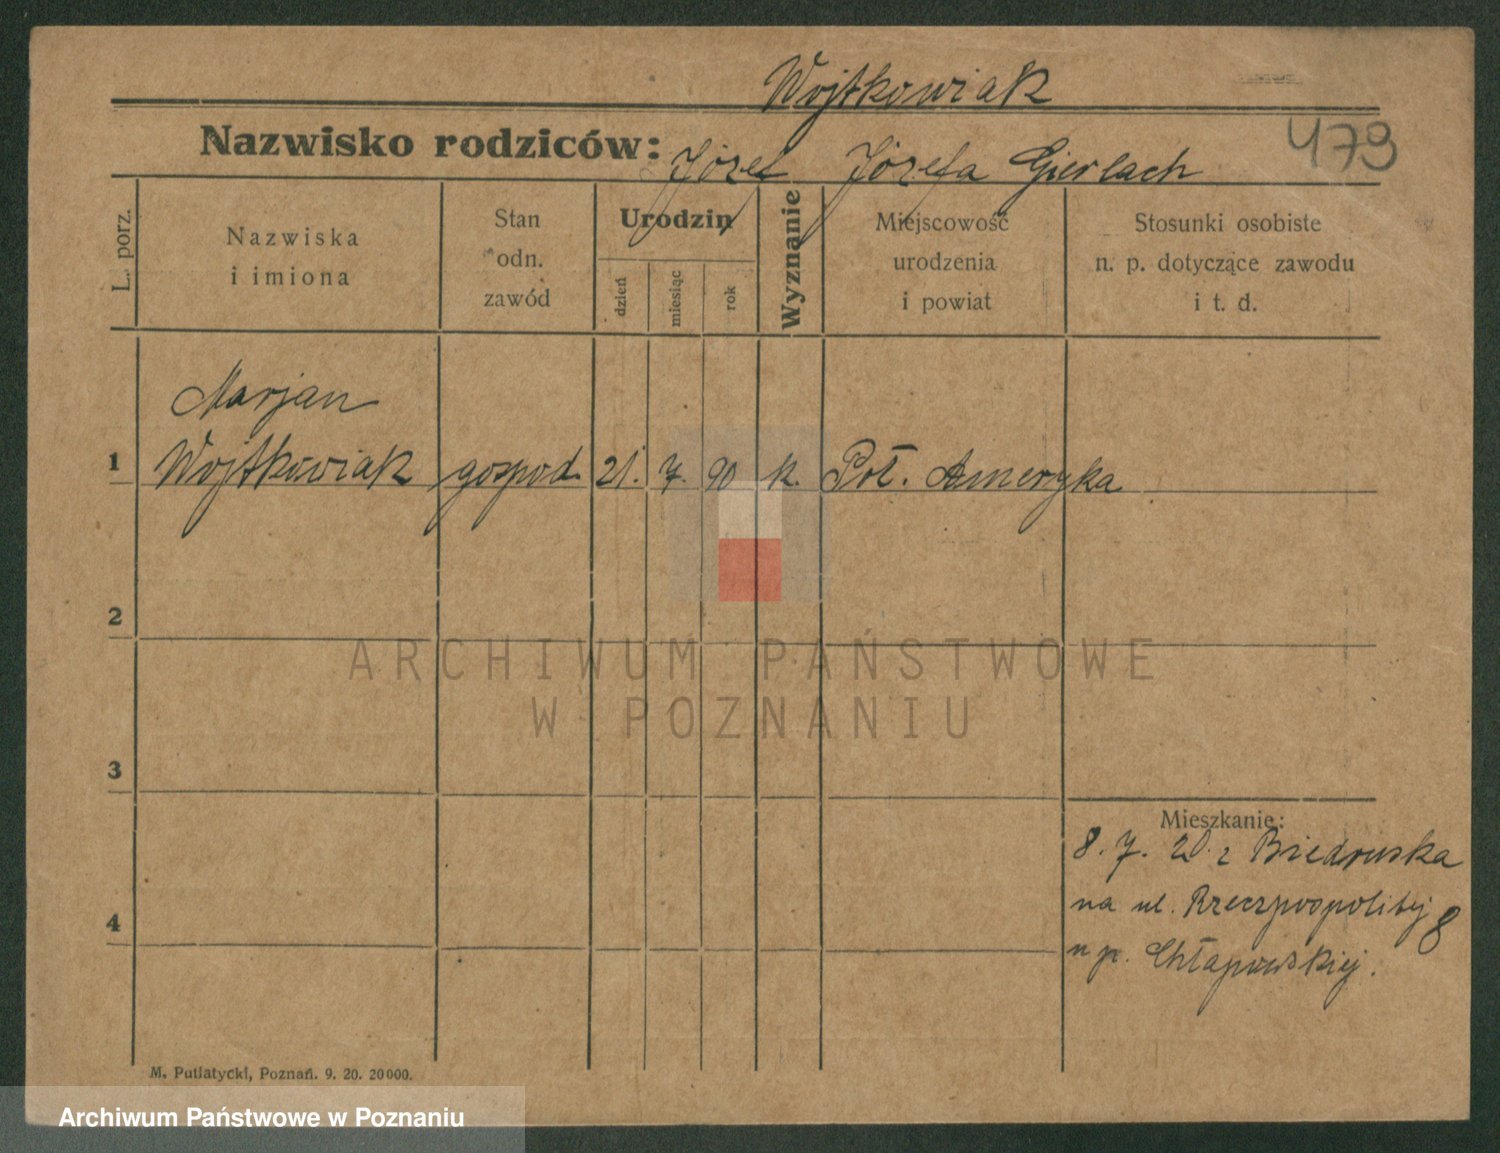 Wojtkowiak
Nazwisko rodziców: Józef Józefa Gierlach
479
L. porz.
Nazwiska
i imiona
Stan
odn.
zawód
Urodzin
dzień
miesiąc
rok
Wyznanie
Miejscowość
urodzenia
i powiat
Stosunki osobiste
n. p. dotyczące zawodu
i t. d.
Marjan
1 Wojtkowiak gospod. 21. 7. 90 k. Poł. Ameryka
2
ARCHIWUM PAŃSTWOWE
W POZNANIU
3
Mieszkanie:
8. 7. 20. z Biedruska
na ul. Rzeczpospolitej 8
4
u p. Chłapowskiej.
M. Putiatycki, Poznań. 9. 20. 20000.
Archiwum Państwowe w Poznaniu